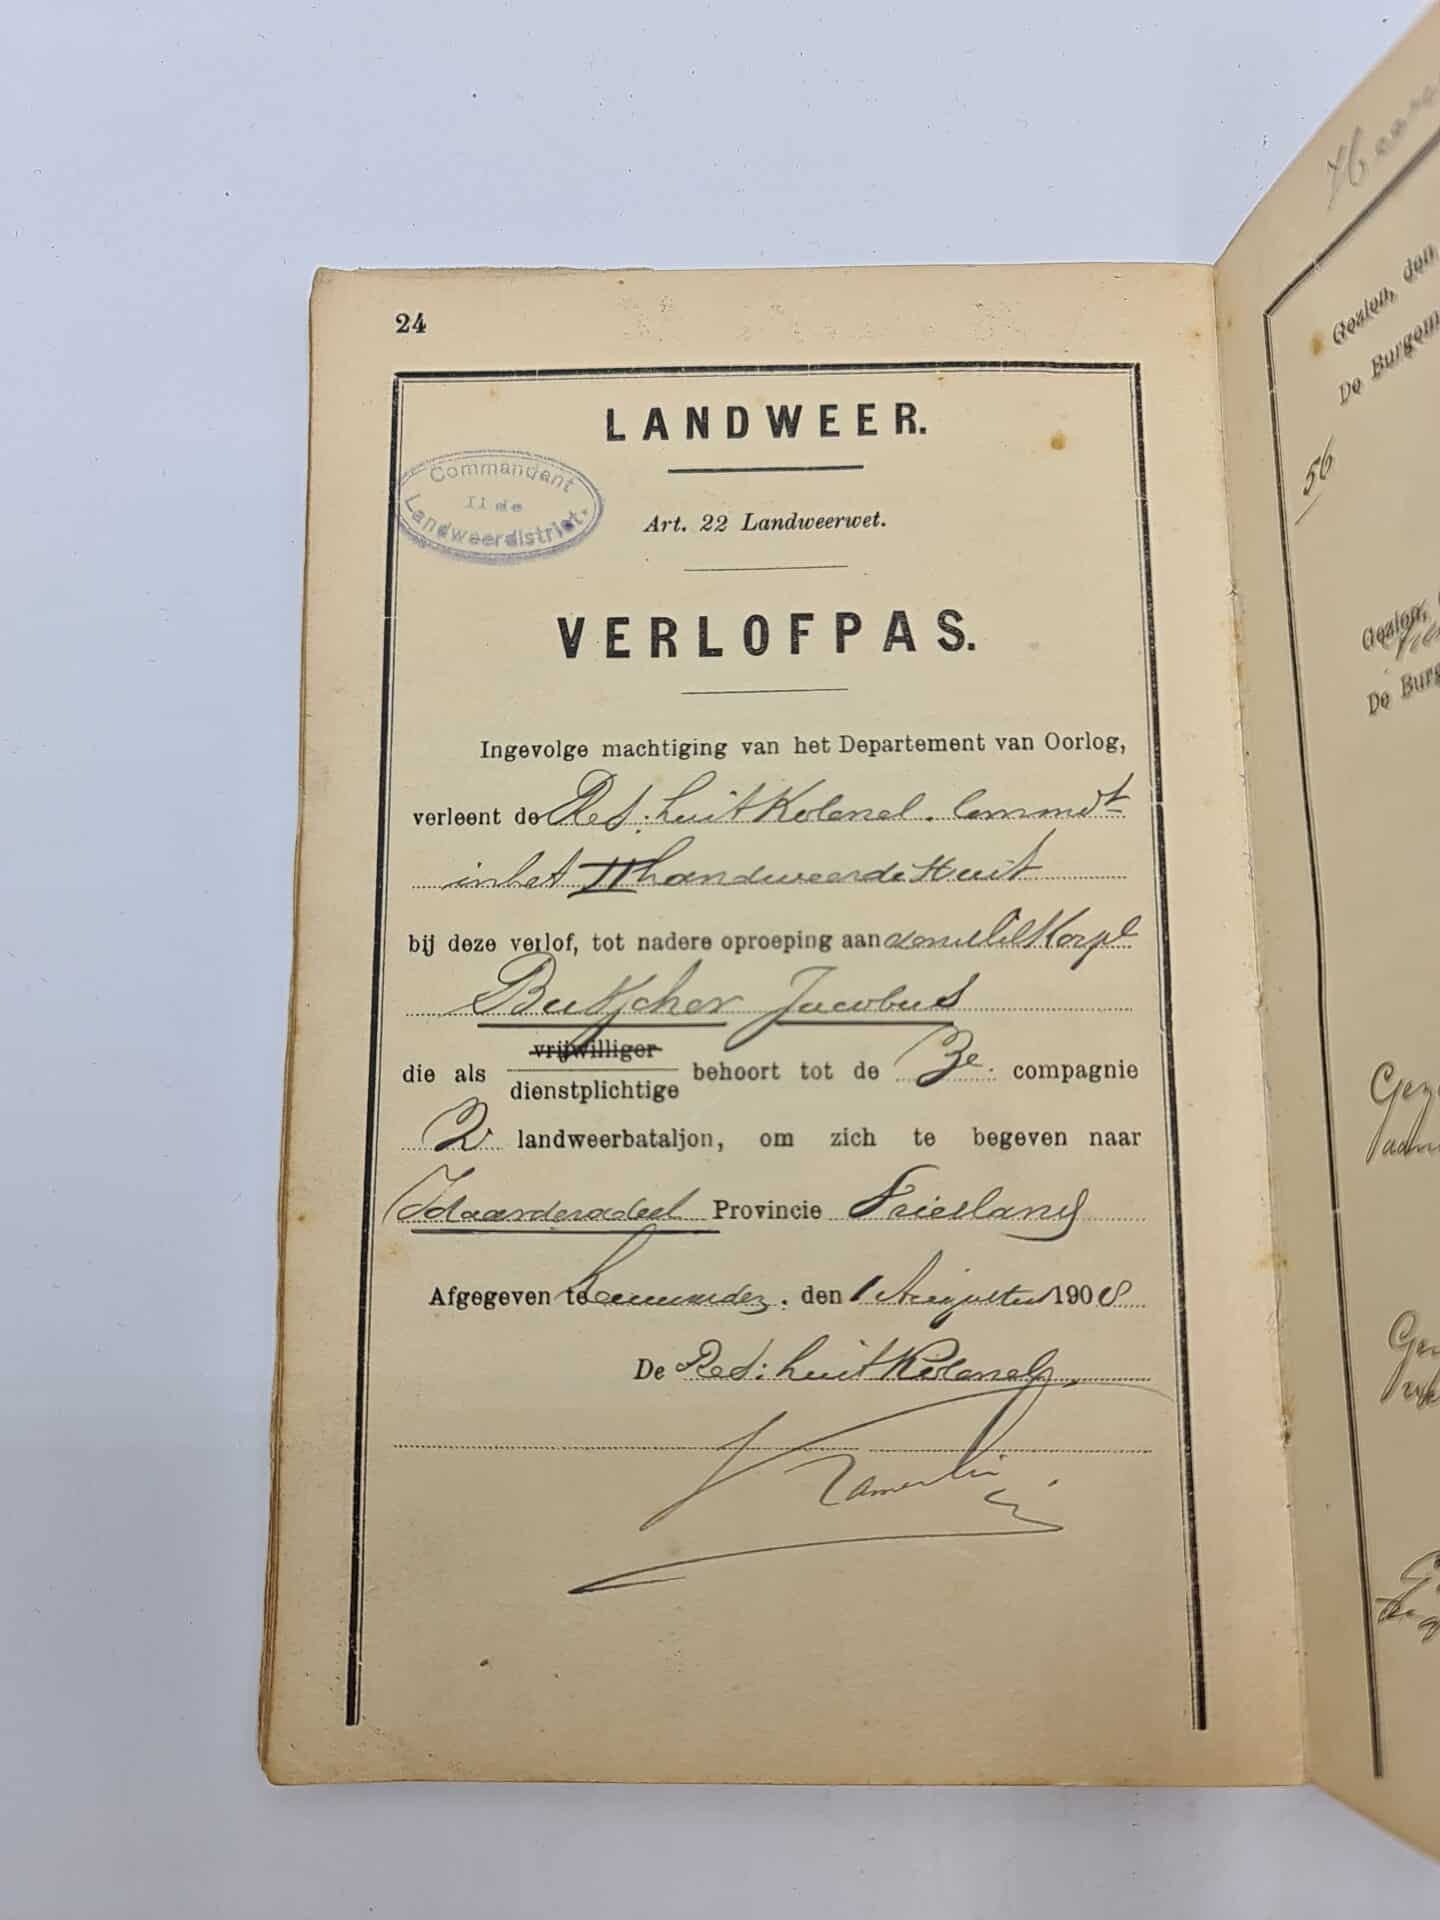 24
LANDWEER.
Commandant
II de
Landweerdistrict.
Art. 22 Landweerwet.
VERLOFPAS.
Ingevolge machtiging van het Departement van Oorlog,
verleent de Res: Luit Kolonel. Commdt
in het II Landweerdistrict
bij deze verlof, tot nadere oproeping aan den Mil Korpl
Butscher Jacobus
vrijwilliger
die als dienstplichtige behoort tot de 3e compagnie
2e landweerbataljon, om zich te begeven naar
Idaarderadeel Provincie Friesland
Afgegeven te Leeuwarden. den 1 Augustus 1908
De Res: Luit Kolonel
Gezien, den
De Burgem
56
Gezien,
De Burg